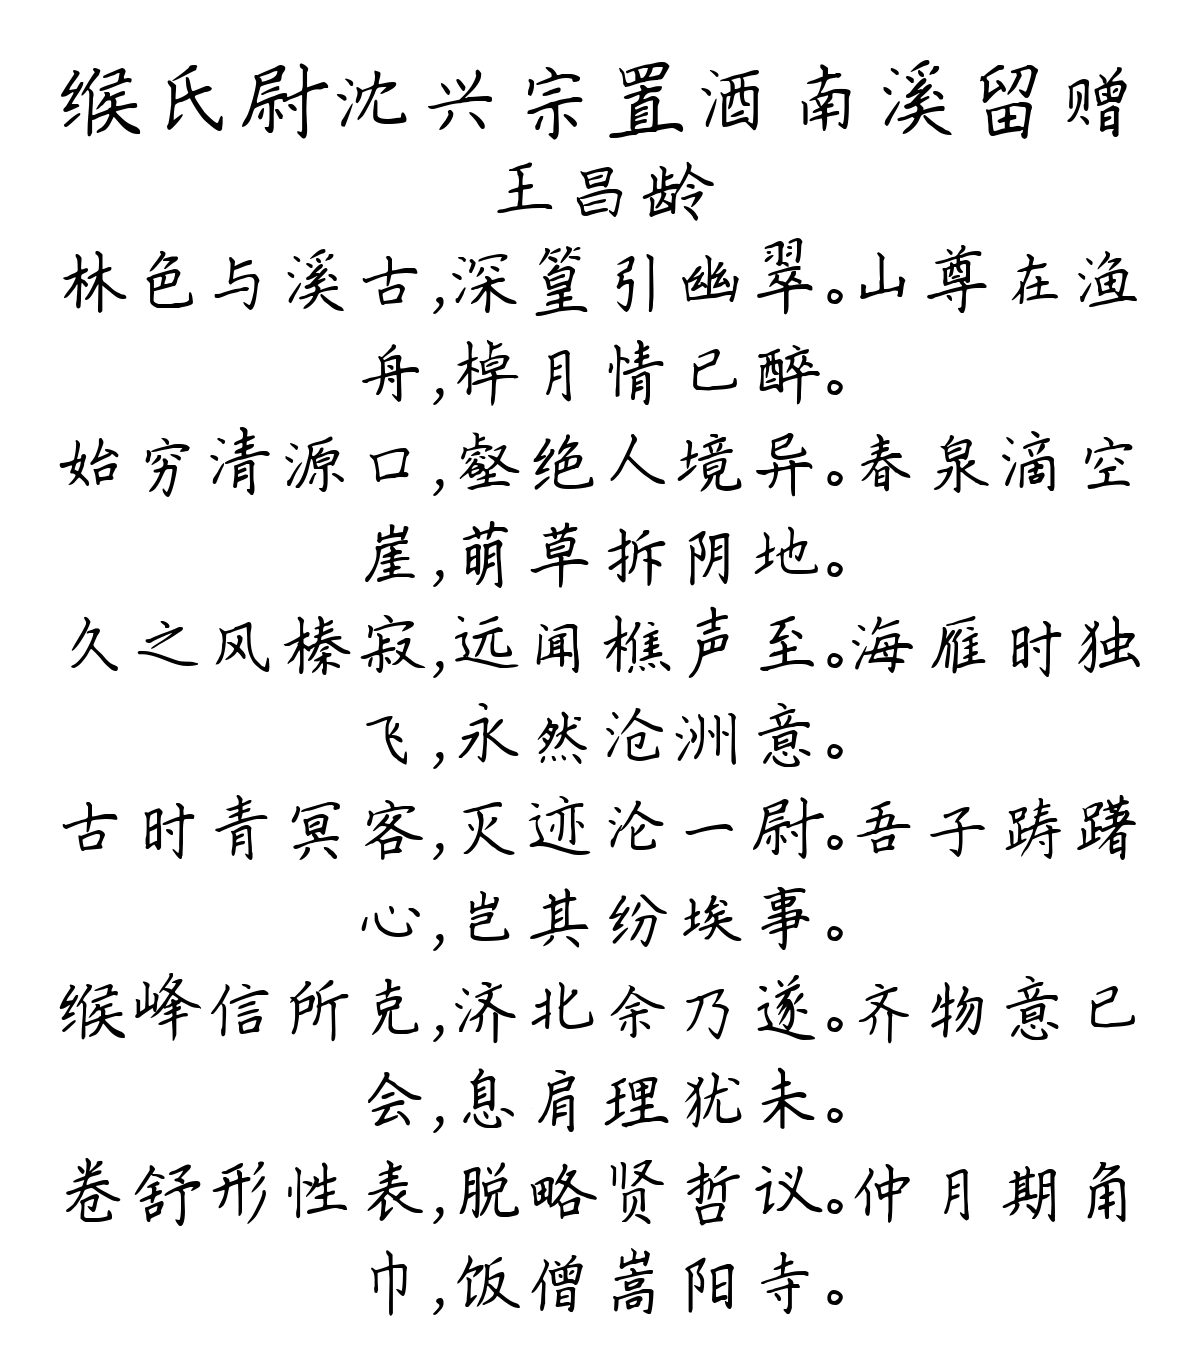 缑氏尉沈兴宗置酒南溪留赠
王昌龄
林色与溪古,深篁引幽翠。山尊在渔
舟,棹月情已醉。
始穷清源口,壑绝人境异。春泉滴空
崖,萌草拆阴地。
久之风榛寂,远闻樵声至。海雁时独
飞,永然沧洲意。
古时青冥客,灭迹沦一尉。吾子踌躇
心,岂其纷埃事。
缑峰信所克,济北余乃遂。齐物意已
会,息肩理犹未。
卷舒形性表,脱略贤哲议。仲月期角
巾,饭僧嵩阳寺。